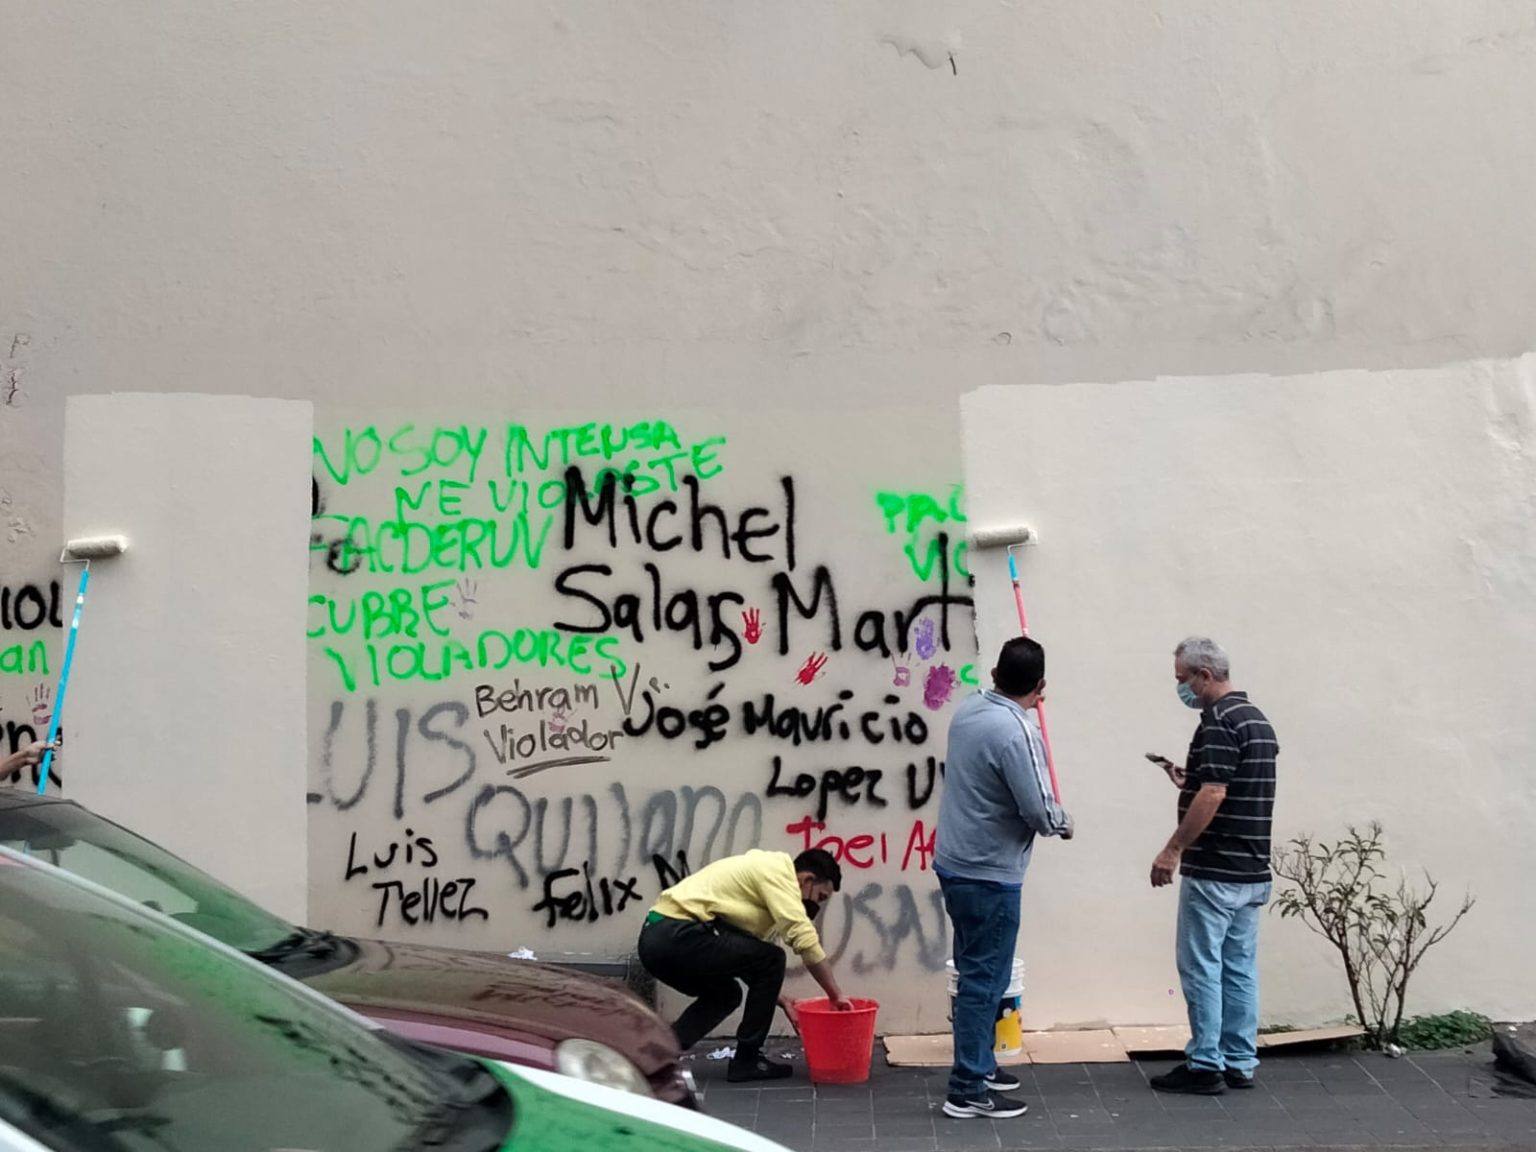 NO SOY INTENSA
ME VIOLASTE
FACDERUV
CUBRE
VIOLADORES
Michel
Salas Mart
Behram V.
Violador
José Mauricio
Lopez
LUIS
QUIJANO
Joel
Luis
Tellez
Felix M
IOL
an